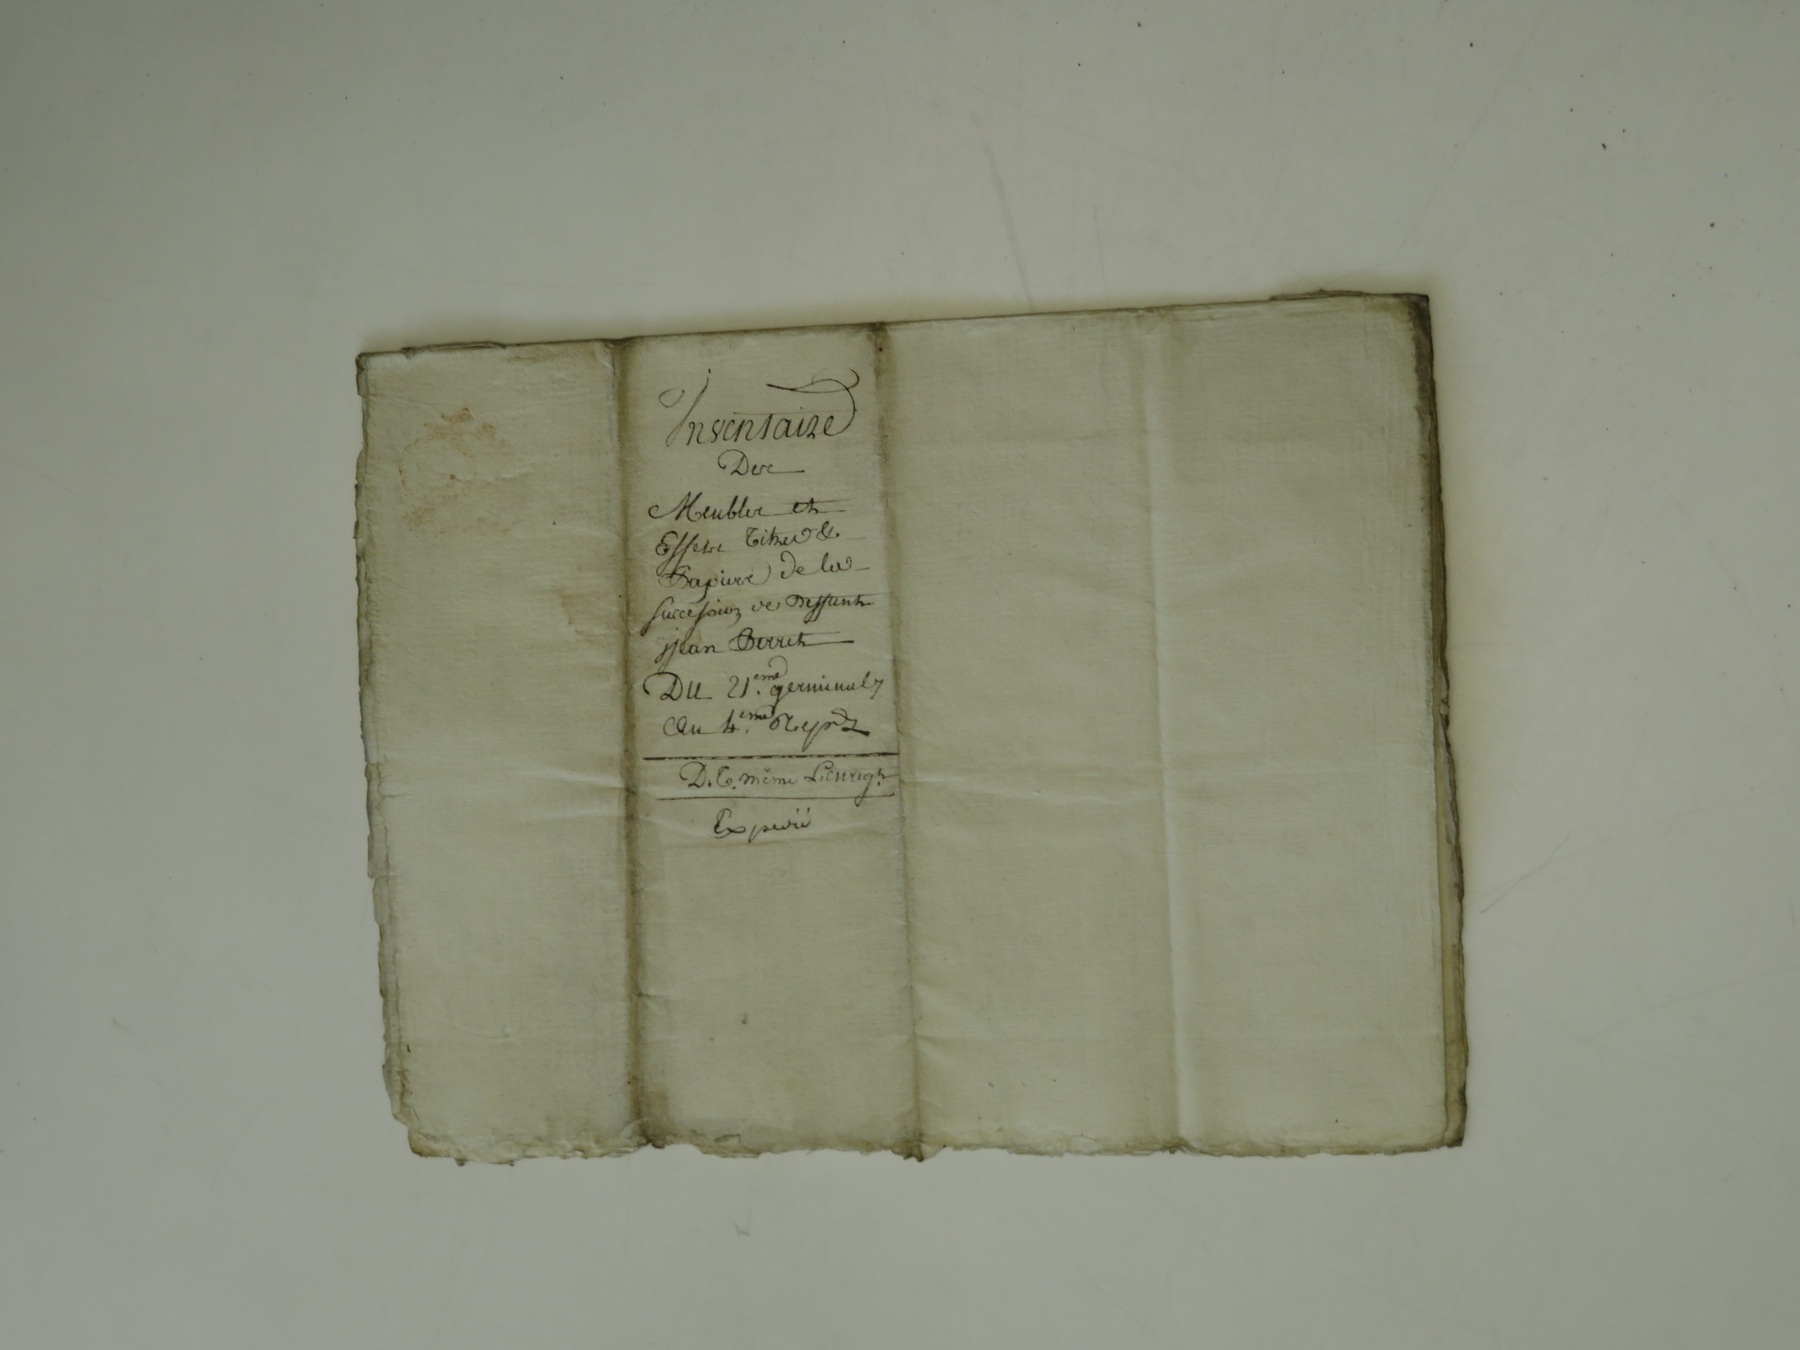 Inventaire
Des
Meubles et
Effets Titres &
Papiers de la
succession de Deffunt
jean Perret
Du 21.eme germinal
au 4.eme
D. C. même
Expedié